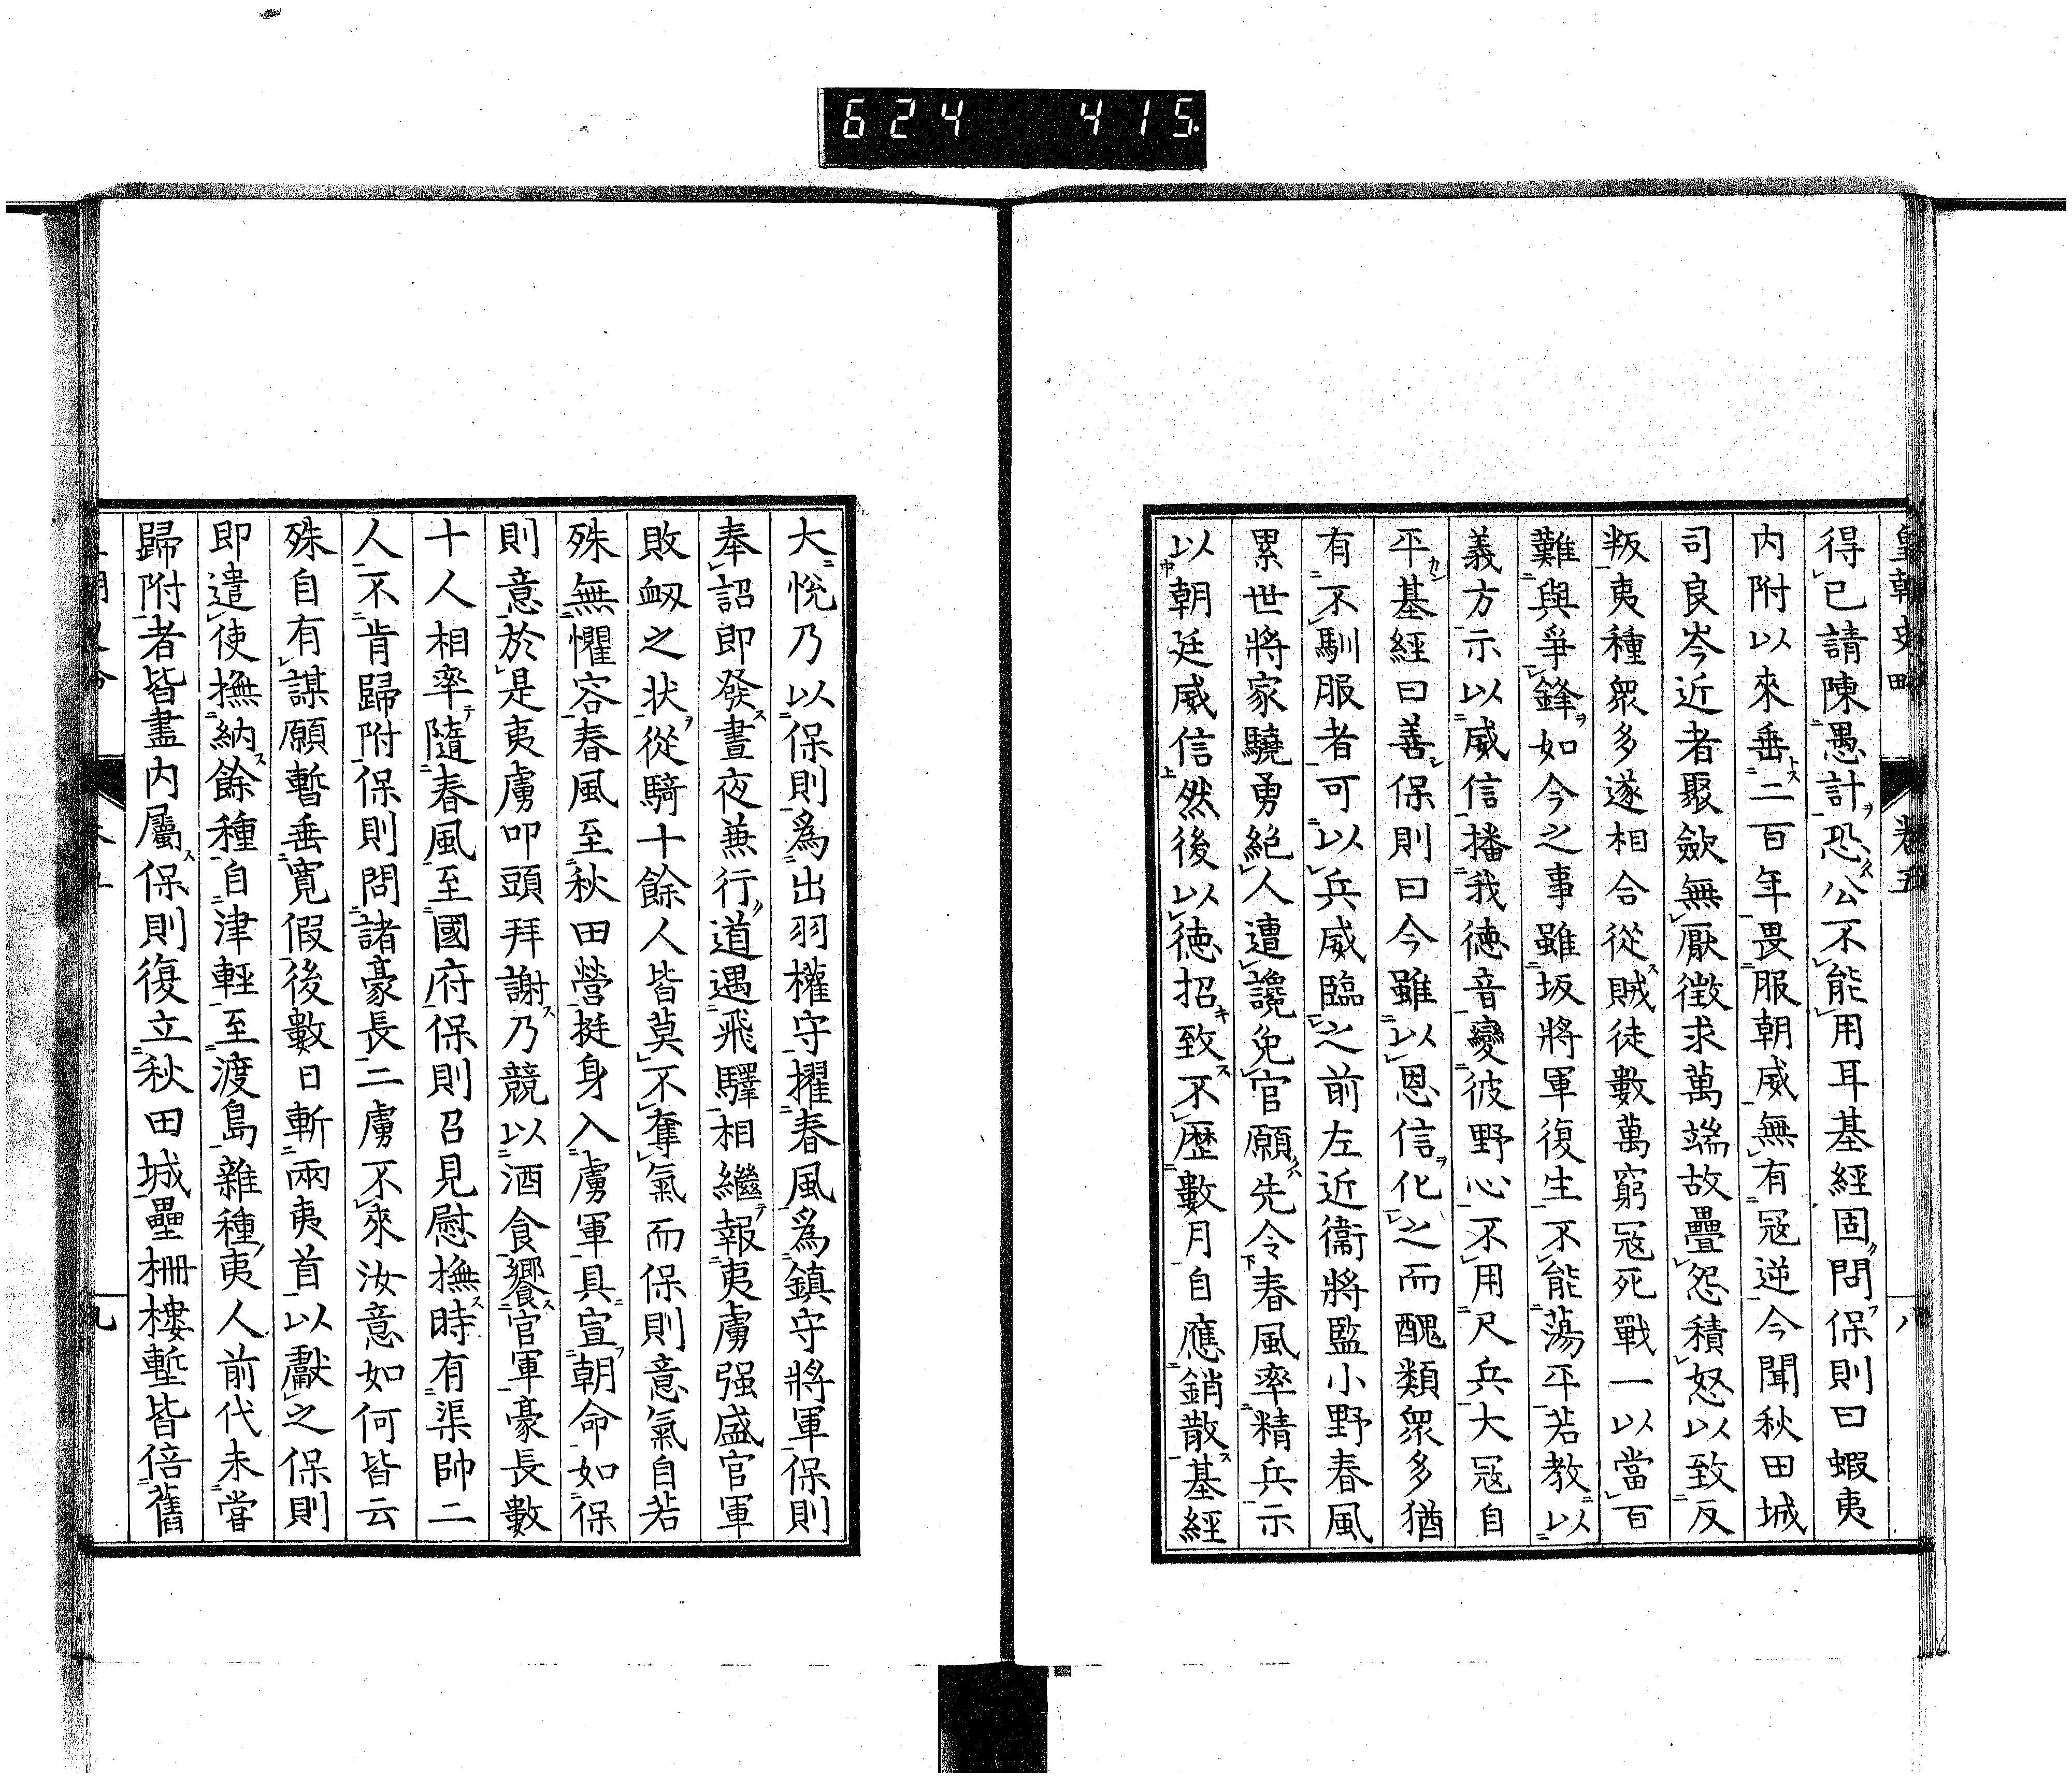 624 415
皇朝史略 卷五 八
得已請陳愚計恐公不能用耳基經固問保則曰蝦夷
内附以來垂二百年畏服朝威無有冦逆今聞秋田城
司良岑近者聚斂無厭徴求萬端故疊怨積怒以致反
叛夷種衆多遂相合從賊徒數萬窮冦死戰一以當百
難與爭鋒如今之事雖坂將軍復生不能蕩平若教以
義方示以威信播我徳音變彼野心不用尺兵大冦自
平基經曰善保則曰今雖以恩信化之而醜類衆多猶
有不馴服者可以兵威臨之前左近衞將監小野春風
累世將家驍勇絶人遭讒免官願先令春風率精兵示
以朝廷威信然後以徳招致不歴數月自應銷散基經
大悅乃以保則爲出羽權守擢春風爲鎭守將軍保則
奉詔即發晝夜兼行道遇飛驛相繼報夷虜强盛官軍
敗衂之状從騎十餘人皆莫不奪氣而保則意氣自若
殊無懼容春風至秋田營挺身入虜軍具宣朝命如保
則意於是夷虜叩頭拜謝乃競以酒食饗官軍豪長數
十人相率隨春風至國府保則召見慰撫時有渠帥二
人不肯歸附保則問諸豪長二虜不來汝意如何皆云
殊自有謀願暫垂寛假後數日斬兩夷首以獻之保則
即遣使撫納餘種自津輕至渡島雜種夷人前代未甞
歸附者皆盡内屬保則復立秋田城壘柵樓塹皆倍舊
九